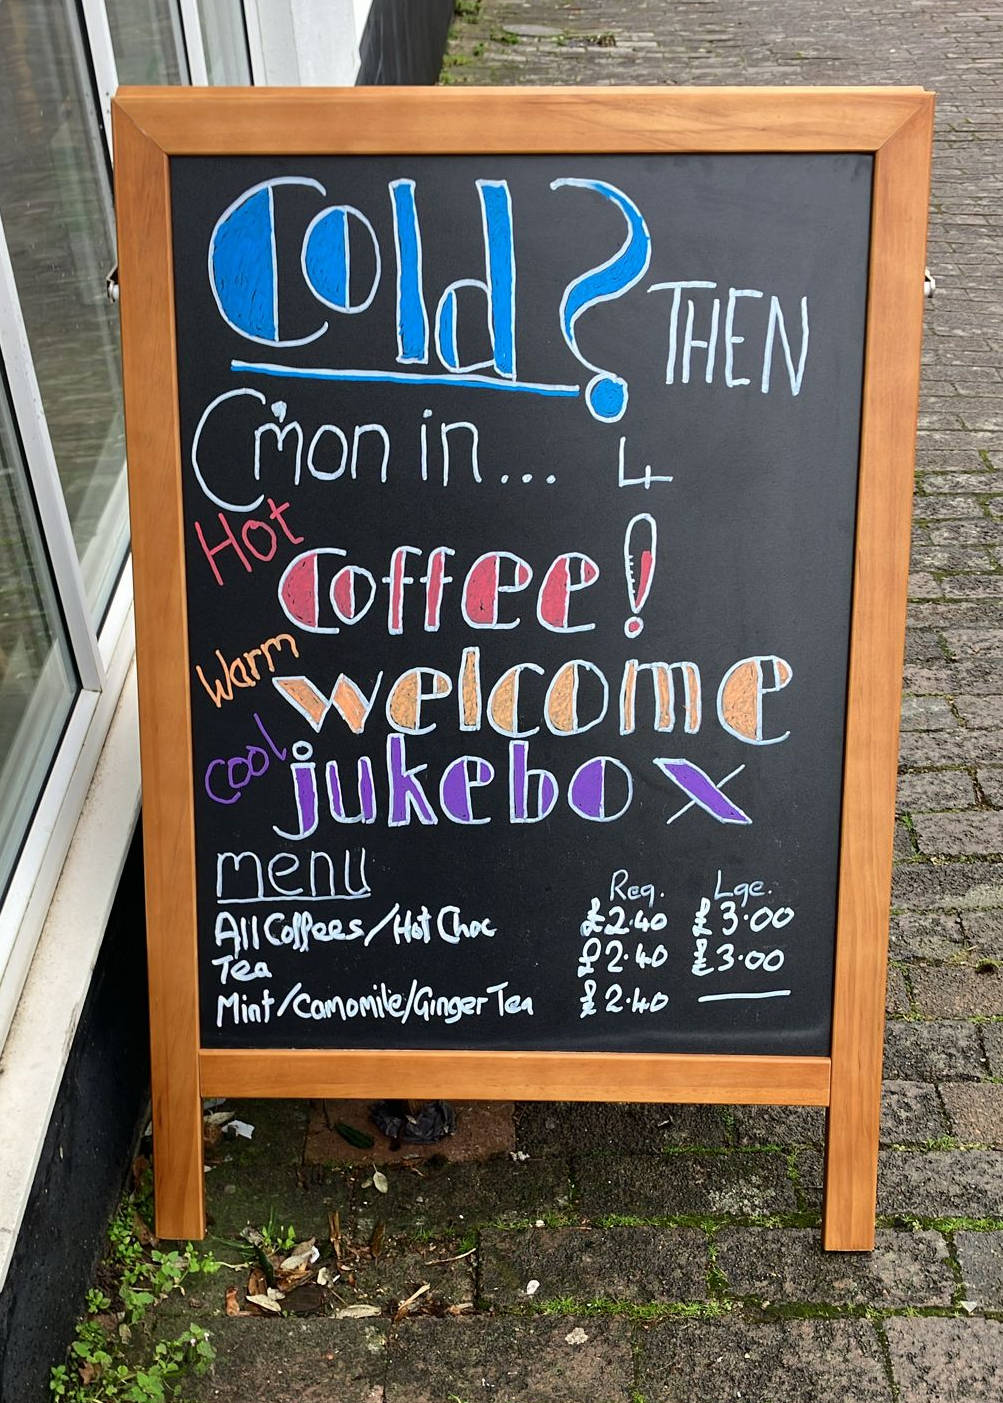 Cold? THEN
C'mon in... 4
Hot Coffee!
Warm welcome
Cool jukebox
menu
Reg. Lge.
All Coffees/Hot Choc £2.40 £3.00
Tea £2.40 £3.00
Mint/Camomile/Ginger Tea £2.40 —